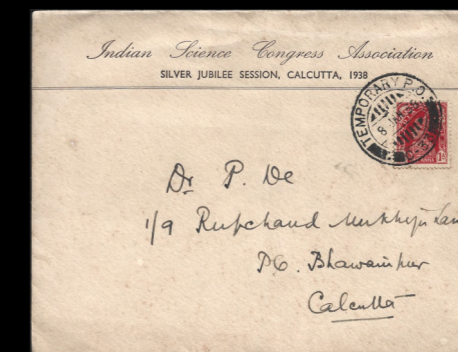 Indian Science Congress Association
SILVER JUBILEE SESSION, CALCUTTA, 1938
TEMPORARY P.O.
8 JAN
Dr P. De
1/9 Rupchand Mukherji Lan
P.O. Bhawanipur
Calcutta